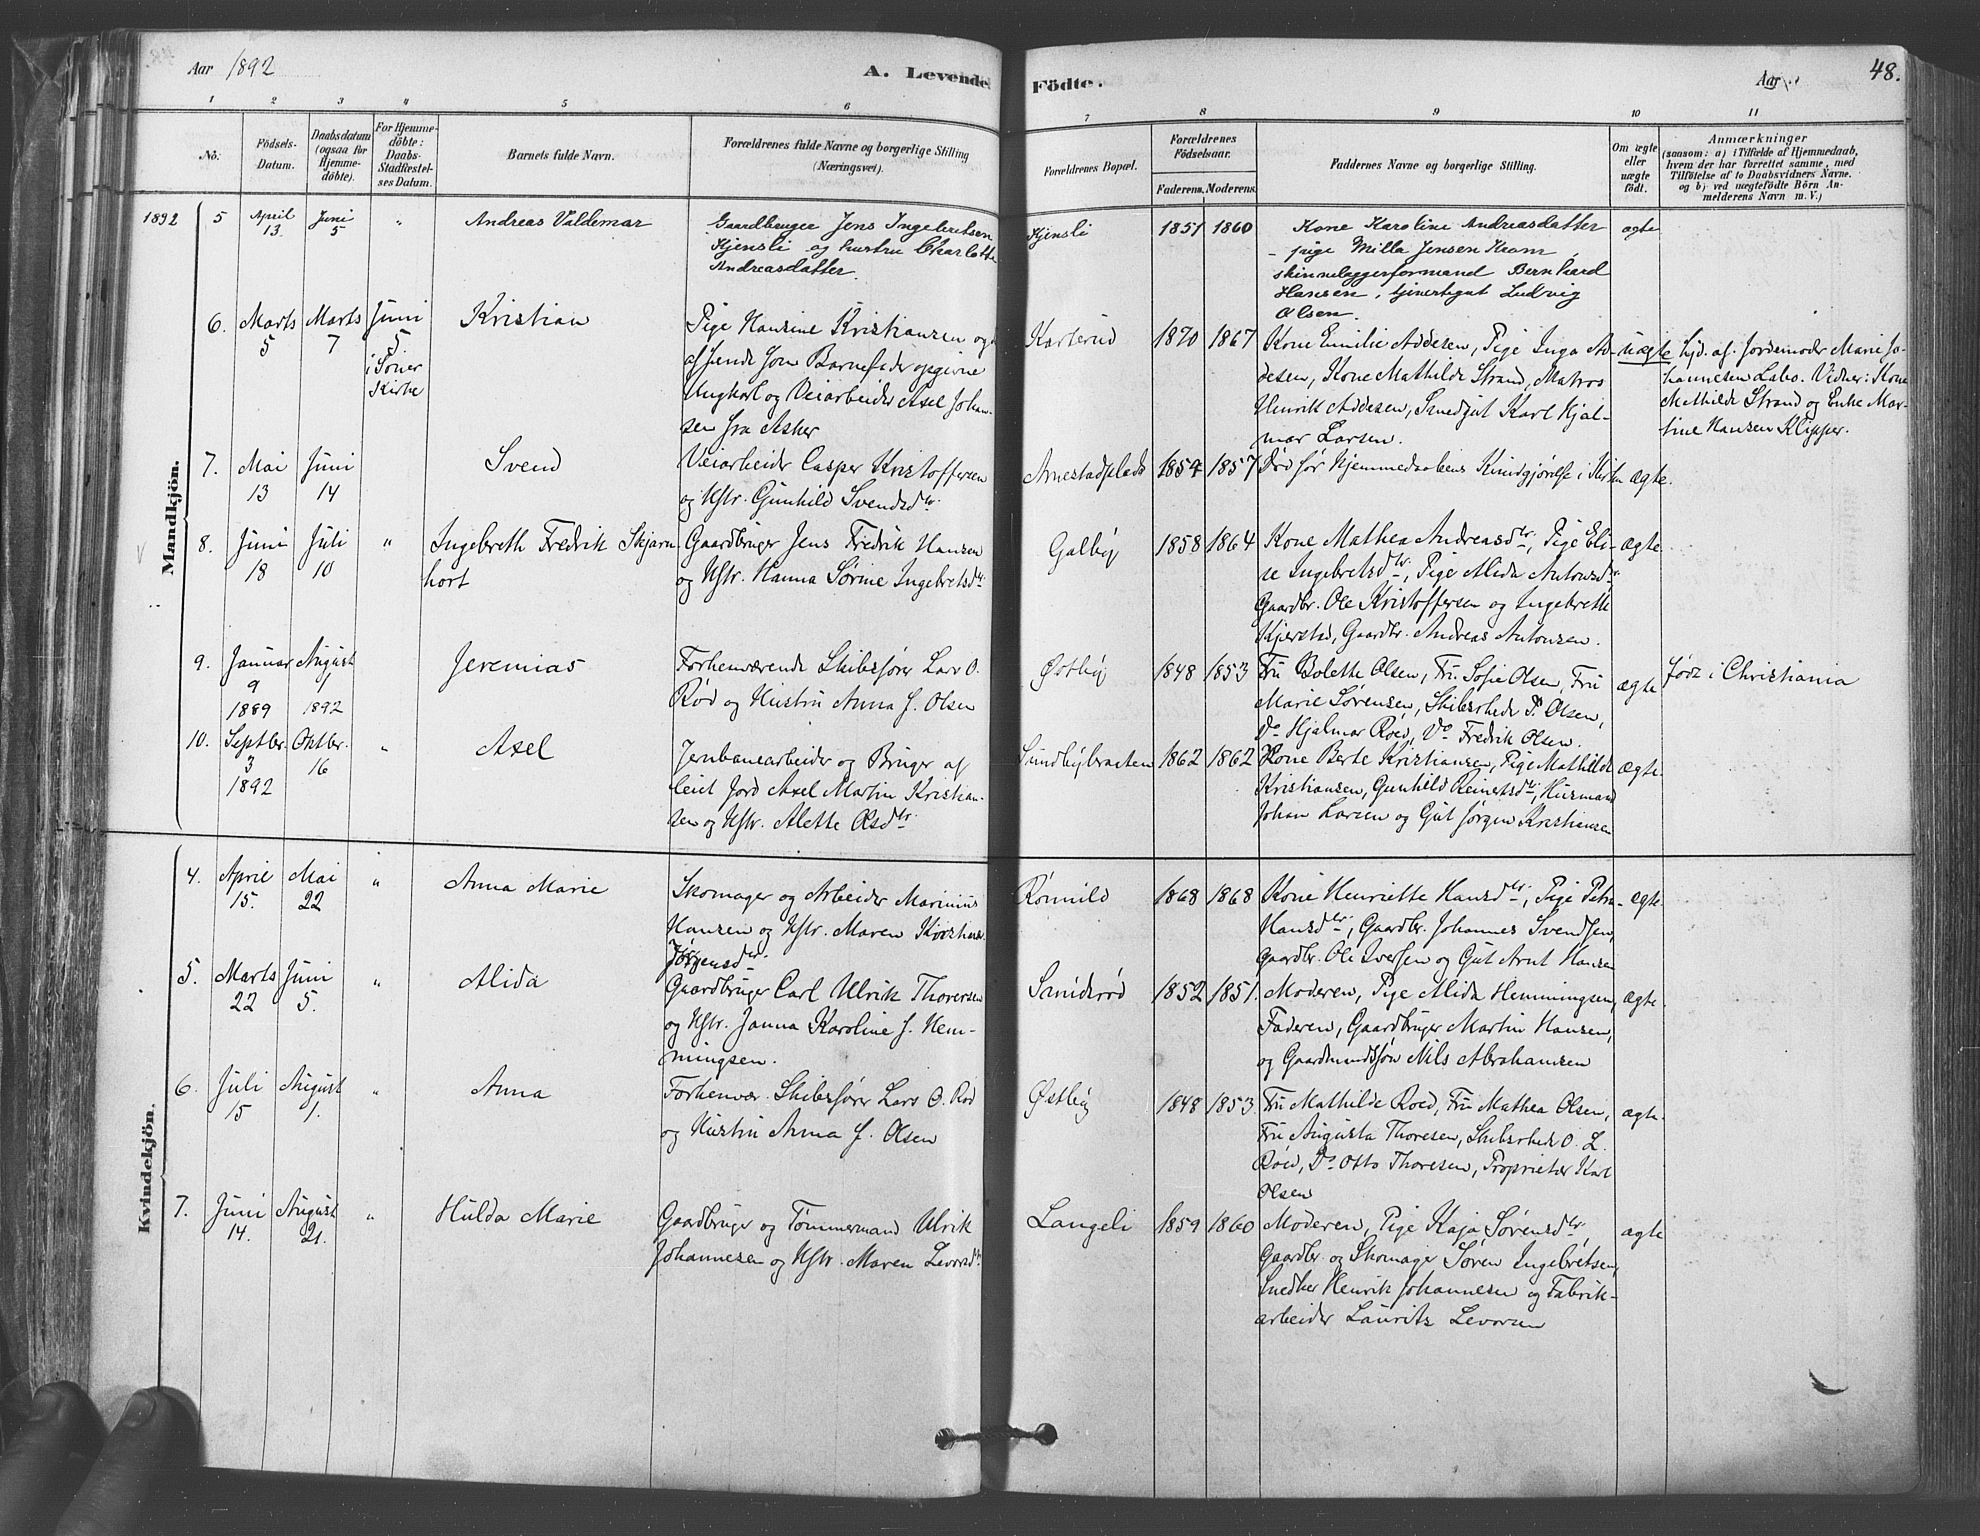 Aar 1892
A. Levende
Födte.
Aar
48.
1 2 3 4 5 6 7 8 9 10 11
No.
Födsels-Datum.
Daabsdatum (ogsaa for Hjemme-döbte).
For Hjemme-döbte: Daabs-Stadfæstel-ses Datum.
Barnets fulde Navn.
Forældrenes fulde Navne og borgerlige Stilling (Næringsvei).
Forældrenes Bopæl.
Forældrenes Födselsaar.
Faderens. Moderens.
Faddernes Navne og borgerlige Stilling.
Om ægte eller uægte födt.
Anmærkninger
(saasom: a) i Tilfælde af Hjemmedaab, hvem der har forrettet samme, med Tilföielse af to Daabsvidners Navne. og b) ved uægtefödte Börn An-melderens Navn m. V.)
Mandkjön.
1892 5 April 13. Juni 5 " Andreas Valdemar
Gaardbruger Jens Ingebretsen
Hjensli og hustru Charlotte
Andreasdatter.
Hjensli 1851 1860
Kone Karoline Andreasdatter
pige Milla Jensen Kram,
skinnelæggerformand Bernhard
Hansen, tjenertgut Ludvig
Olsen.
ægte
6. Marts 5 Marts 7 Juni 5 i Søner Kirke Kristian
Pige Hansine Kristiansen og
af hende som Barnefader opgivne
Ungkarl og Veiarbeider Axel Johan-
sen fra Asker
Karlerud 1870 1867
Kone Emilie Addesen, Pige Inga Ad-
desen, Kone Mathilde Strand, Matros
Henrik Addesen, Smedgut Karl Hjal-
mar Larsen.
uægte
Hjd. af Jordemoder Marie Jo-
hannesen Labo. Vidner: Kone
Mathilde Strand og Enke Mar-
tine Hansen Klipper.
7. Mai 13 Juni 14 Svend
Veiarbeider Casper Kristoffersen
og Hstr. Gunhild Svendsdtr.
Arnestadplads 1854 1857
Død før Hjemmedaabens Kundgjørelse i Kirken
ægte.
8. Juni 18 Juli 10 " Ingebreth Fredrik Skjarn
hort
Gaardbruger Jens Fredrik Hansen
og Hstr. Hanna Sørine Ingebretsdtr.
Galby 1858 1864
Kone Mathea Andreasdtr, Pige Eli-
se Ingebretsdtr, Pige Alida Antonsdtr
Gaardbr. Ole Kristoffersen og Ingebreth
Kjerstad, Gaardbr. Andreas Antonsen.
ægte
9. Januar 9 1889 August 1 1892 Jeremias
Forhenværende Skibsfører Lars O.
Rød og Hustru Anna J. Olsen
Østby 1848 1853
Fru Bolette Olsen, Fru Sofie Olsen, Fru
Marie Sørensen, Skibsrheder P. Olsen,
Do Hjalmar Roed, Do Fredrik Olsen.
ægte
født i Christiania
10. Septbr. 3 1892 Oktbr. 16 " Axel
Jernbanearbeider og Bruger af
leiet Jord Axel Martin Kristian-
sen og Hstr. Alette Olsdtr.
Sundbybraaten 1862 1862
Kone Berte Kristiansen, Pige Mathilde
Kristiansen, Gunhild Reinertsdtr, Husmand
Johan Larsen og Gut Jørgen Kristiansen
ægte.
Kvindekjön.
4. April 15. Mai 22 " Anna Marie
Skomager og Arbeider Marinius
Hansen og Hstr. Maren Kristine
Jørgensdtr.
Rømild 1868 1868
Kone Henriette Hansdtr, Pige Petra
Hansdtr, Gaardbr. Johannes Svendsen,
Gaardbr. Ole Iversen og Gut Arnt Hansen
ægte.
5. Marts 22 Juni 5. " Alida
Gaardbruger Carl Ulrik Thoresen
og Hstr. Janna Karoline J. Hem-
mingsen.
Sanderød 1852 1851.
Moderen, Pige Alida Hemmingsen,
Faderen, Gaardbruger Martin Hansen,
og Gaardmandssøn Nils Abrahamsen
ægte.
6. Juli 15 August 1. " Anna
Forhenvær. Skibsfører Lars O. Rød
og Hustru Anna J. Olsen
Østby 1848 1853
Fru Mathilde Roed, Fru Mathea Olsen,
Fru Augusta Thoresen, Skibsrheder O. L.
Røed, Do Otto Thoresen, Proprietær Karl
Olsen
ægte.
7. Juni 14. August 21. " Hulda Marie
Gaardbruger og Tømmermand Ulrik
Johannesen og Hstr. Maren Levorsdtr.
Langeli 1859 1860
Moderen, Pige Kaja Sørensdtr,
Gaardbr. og Skomager Søren Ingebretsen,
Snedker Henrik Johannesen og Fabrik-
arbeider Lauritz Levorsen
ægte